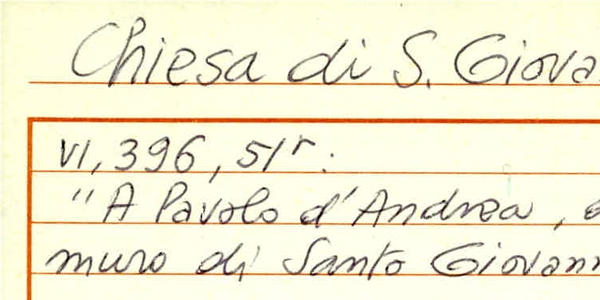 Chiesa di S. Giova
VI, 396, 51r:
"A Pavolo d'Andrea,
muro di Santo Giovann